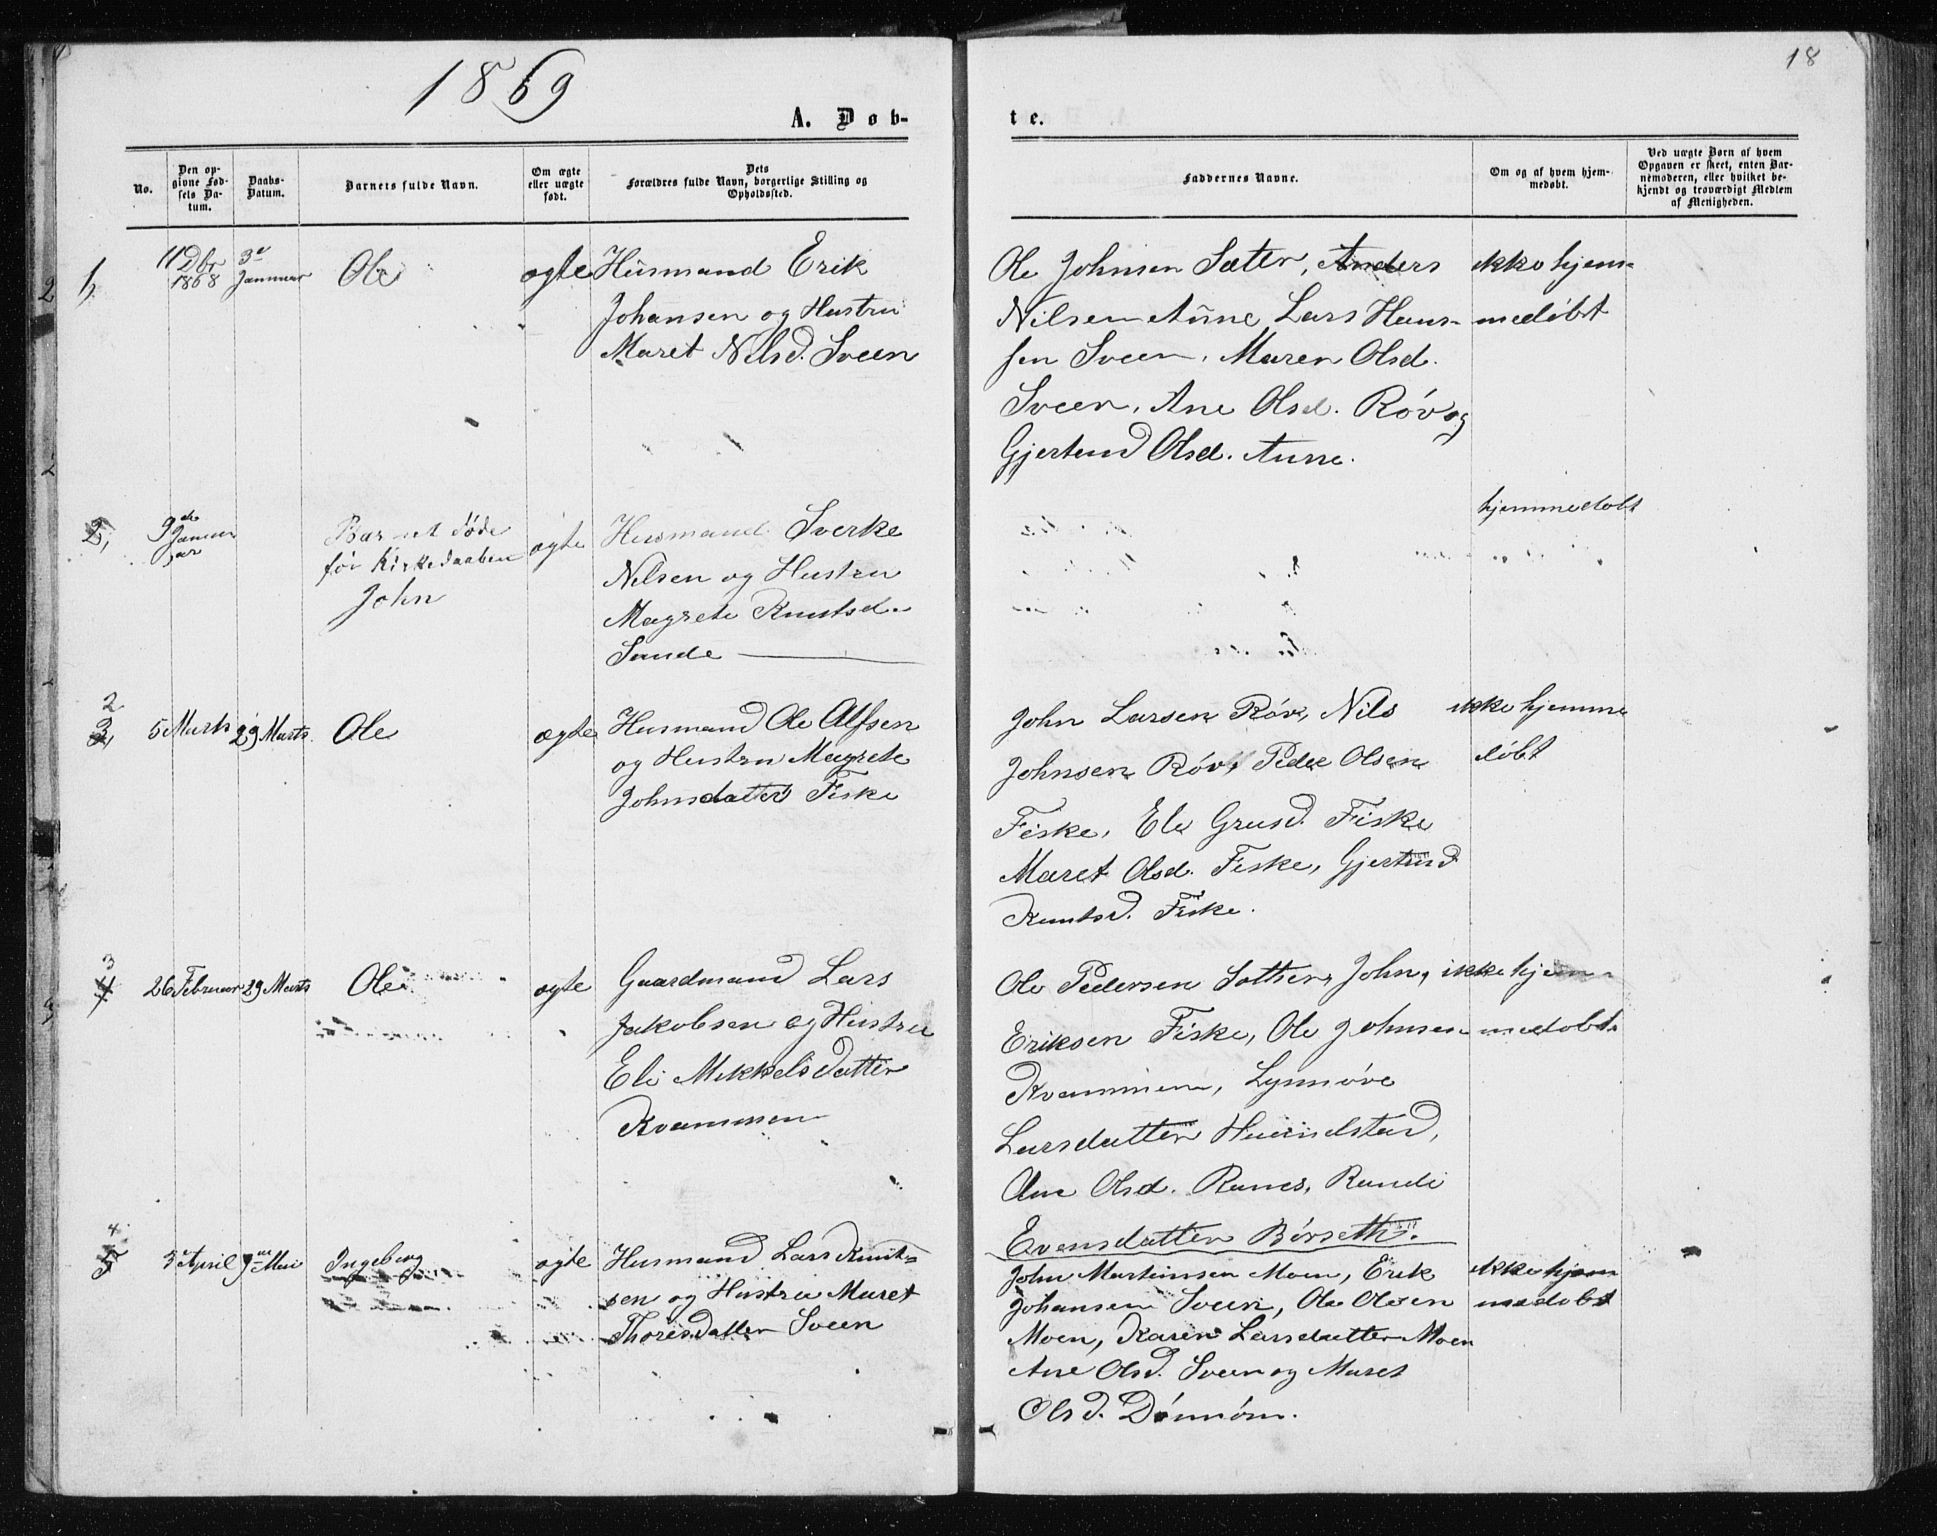 1869
18
A. Døb-
te.
No.
Den op-
givne Fød-
sels Da-
tum.
Daabs-
Datum.
Barnets fulde Navn.
Om ægte
eller uægte
født.
Dets
Forældres fulde Navn, borgerlige Stilling og
Opholdssted.
Faddernes Navne.
Om og af hvem hjem-
medøbt.
Ved uægte Børn af hvem
Opgaven er skeet, enten Bar-
nemoderen, eller hvilket be-
kjendt og troværdigt Medlem
af Menigheden.
1,
11 Dbr
1868
3e
Januar
Ole
ægte
Husmand Erik
Johansen og Hustru
Maret Nilsd. Sveen
Ole Johnsen Sæter, Anders
Nilsen Aune Lars Hans-
sen Sveen, Maren Olsd.
Sveen, Ane Olsd. Röv og
Gjertrud Olsd. Aune.
ikke hjem-
medöbt
2,
9de
Janu
ar
Barnet döde
för Kirkedaaben
John
ægte
Husmand Sverke
Nilsen og Hustru
Magrete Knutsd.
Sande
hjemmedöbt
2
3,
5 Marts
29 Marts
Ole
ægte
Husmand Ole Alfsen
og Hustru Magrete
Johnsdatter Fiske
John Larsen Röv, Nils
Johnsen Röv, Peder Olsen
Fiske, Eli Grusd. Fiske
Maret Olsd. Fiske, Gjertrud
Knutsd. Fiske.
ikke hjemme
döbt
3
4
26 Februar
29 Marts
Ole
ægte
Gaardmand Lars
Jakobsen og Hustru
Eli Mikkelsdatter
Kvammen
Ole Pedersen Sæther, John
Eriksen Fiske, Ole Johnsen
Kvammen, Synnöve
Larsdatter
Ane Olsd. Ranes, Randi
Evensdatter Börseth.
ikke hjem-
medöbt
4
5
3e April
9de Mai
Ingeborg
ægte
Husmand Lars Knut-
sen og Hustru Maret
Thoresdatter Sveen
John Martinsen Moen, Erik
Johansen Sveen, Ole Olsen
Moen, Karen Larsdatter Moen
Ane Olsd. Sveen og Maret
Olsd. Dönnöm.
ikke hjem
medöbt